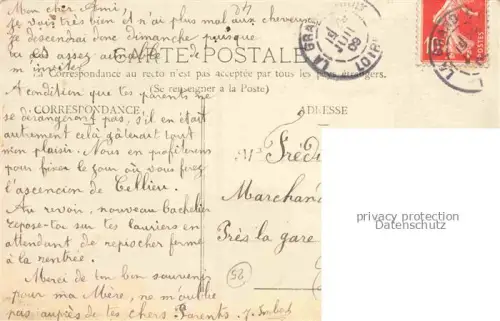 Mon cher Ami,
je vais très bien et n'ai plus mal aux cheveux
je descendrai donc dimanche puisque
tu es assez aimable
m'inviter
CARTE POSTALE
La Correspondance au recto n'est pas acceptée par tous les pays étrangers.
(Se renseigner à la Poste)
CORRESPONDANCE
A condition que tes parents ne
se dérangeront pas, s'il en était
autrement celà gâterait tout
mon plaisir. Nous en profiterons
pour fixer le jour où vous ferez
l'ascencion de Cellieu.
Au revoir, nouveau bachelier
repose-toi sur tes lauriers en
attendant de repiocher ferme
à la rentrée.
Merci de ton bon souvenir
pour ma Mère, ne m'oublie
pas auprès de tes chers Parents.
ADRESSE
Mr Frédé
Marchand
Près la gare
25
LA GRAND
LOIRE
09
10
privacy protection
Datenschutz